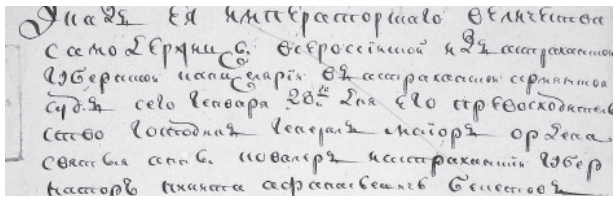 Указъ ея императорскаго величества
самодержицы всероссiйской изъ астраханской
губернской канцелярiи въ астраханской армянской
судъ сего генваря 20го дня его превосходитель
ство господинъ генералъ маiоръ ордена
святыя анны кавалеръ и астраханскiй губер
наторъ никита афанасьевичъ бекетовъ